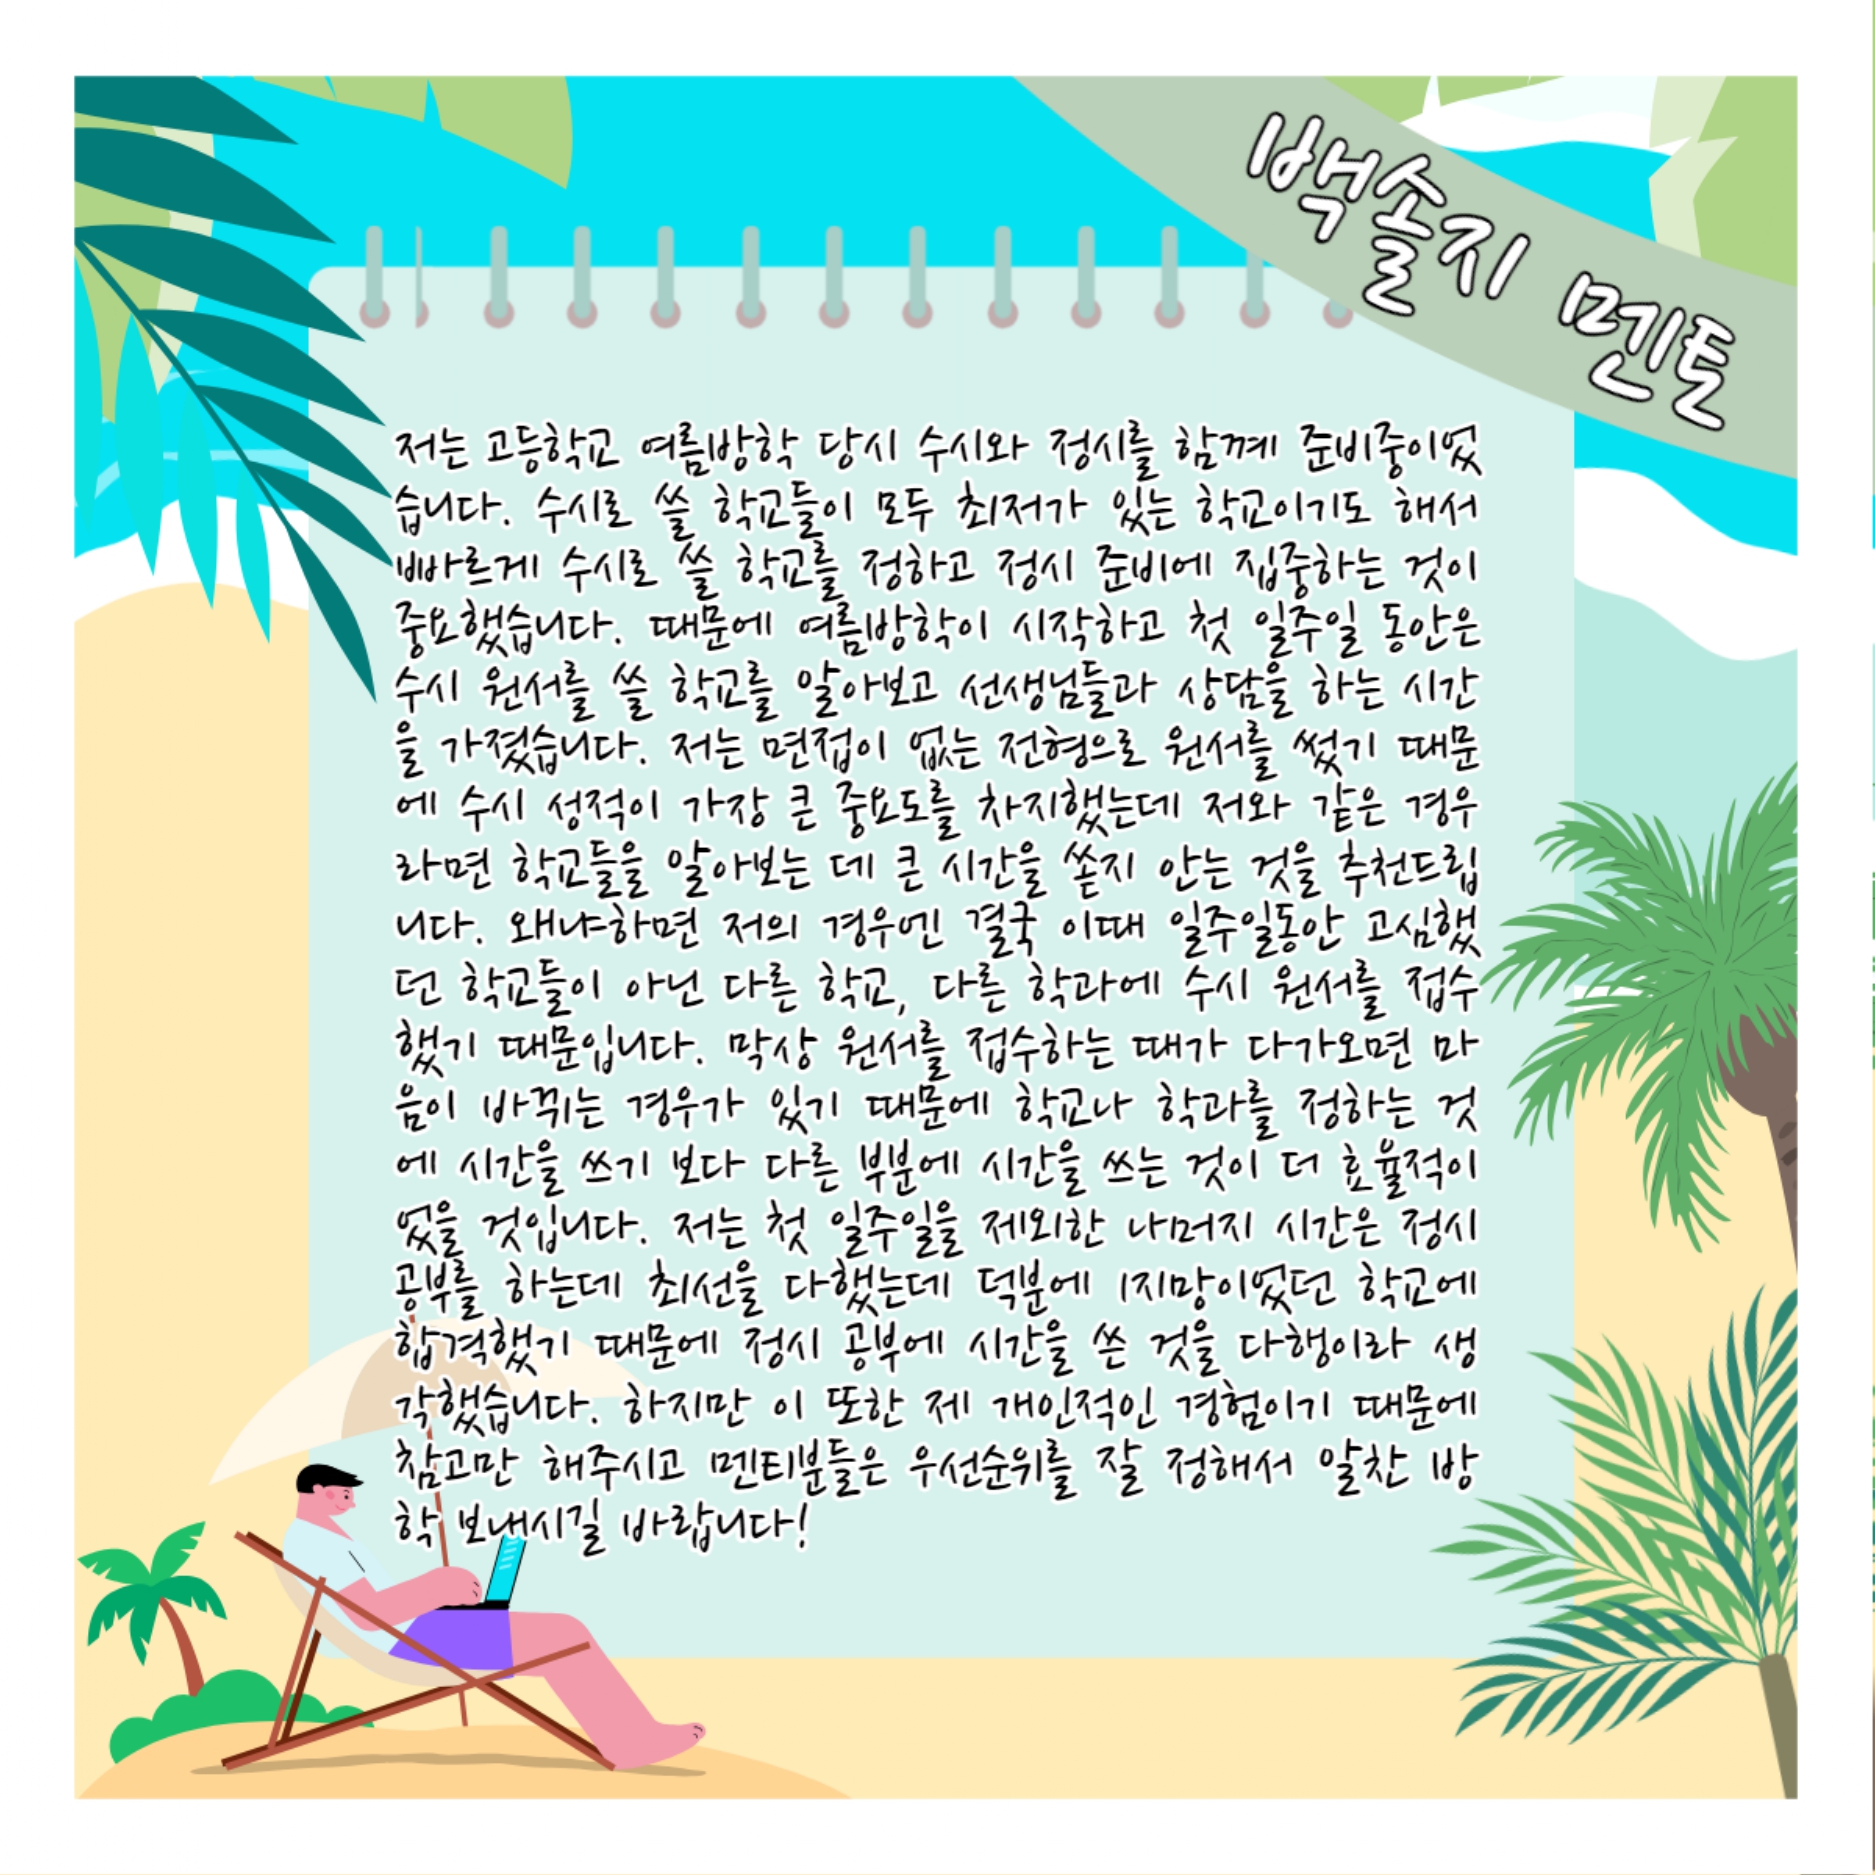 백솔지 멘토
저는 고등학교 여름방학 당시 수시와 정시를 함께 준비중이었
습니다. 수시로 쓸 학교들이 모두 최저가 있는 학교이기도 해서
빠르게 수시로 쓸 학교를 정하고 정시 준비에 집중하는 것이
중요했습니다. 때문에 여름방학이 시작하고 첫 일주일 동안은
수시 원서를 쓸 학교를 알아보고 선생님들과 상담을 하는 시간
을 가졌습니다. 저는 면접이 없는 전형으로 원서를 썼기 때문
에 수시 성적이 가장 큰 중요도를 차지했는데 저와 같은 경우
라면 학교들을 알아보는 데 큰 시간을 쏟지 안는 것을 추천드립
니다. 왜냐하면 저의 경우엔 결국 이때 일주일동안 고심했
던 학교들이 아닌 다른 학교, 다른 학과에 수시 원서를 접수
했기 때문입니다. 막상 원서를 접수하는 때가 다가오면 마
음이 바뀌는 경우가 있기 때문에 학교나 학과를 정하는 것
에 시간을 쓰기 보다 다른 부분에 시간을 쓰는 것이 더 효율적이
었을 것입니다. 저는 첫 일주일을 제외한 나머지 시간은 정시
공부를 하는데 최선을 다했는데 덕분에 1지망이었던 학교에
합격했기 때문에 정시 공부에 시간을 쓴 것을 다행이라 생
각했습니다. 하지만 이 또한 제 개인적인 경험이기 때문에
참고만 해주시고 멘티분들은 우선순위를 잘 정해서 알찬 방
학 보내시길 바랍니다!